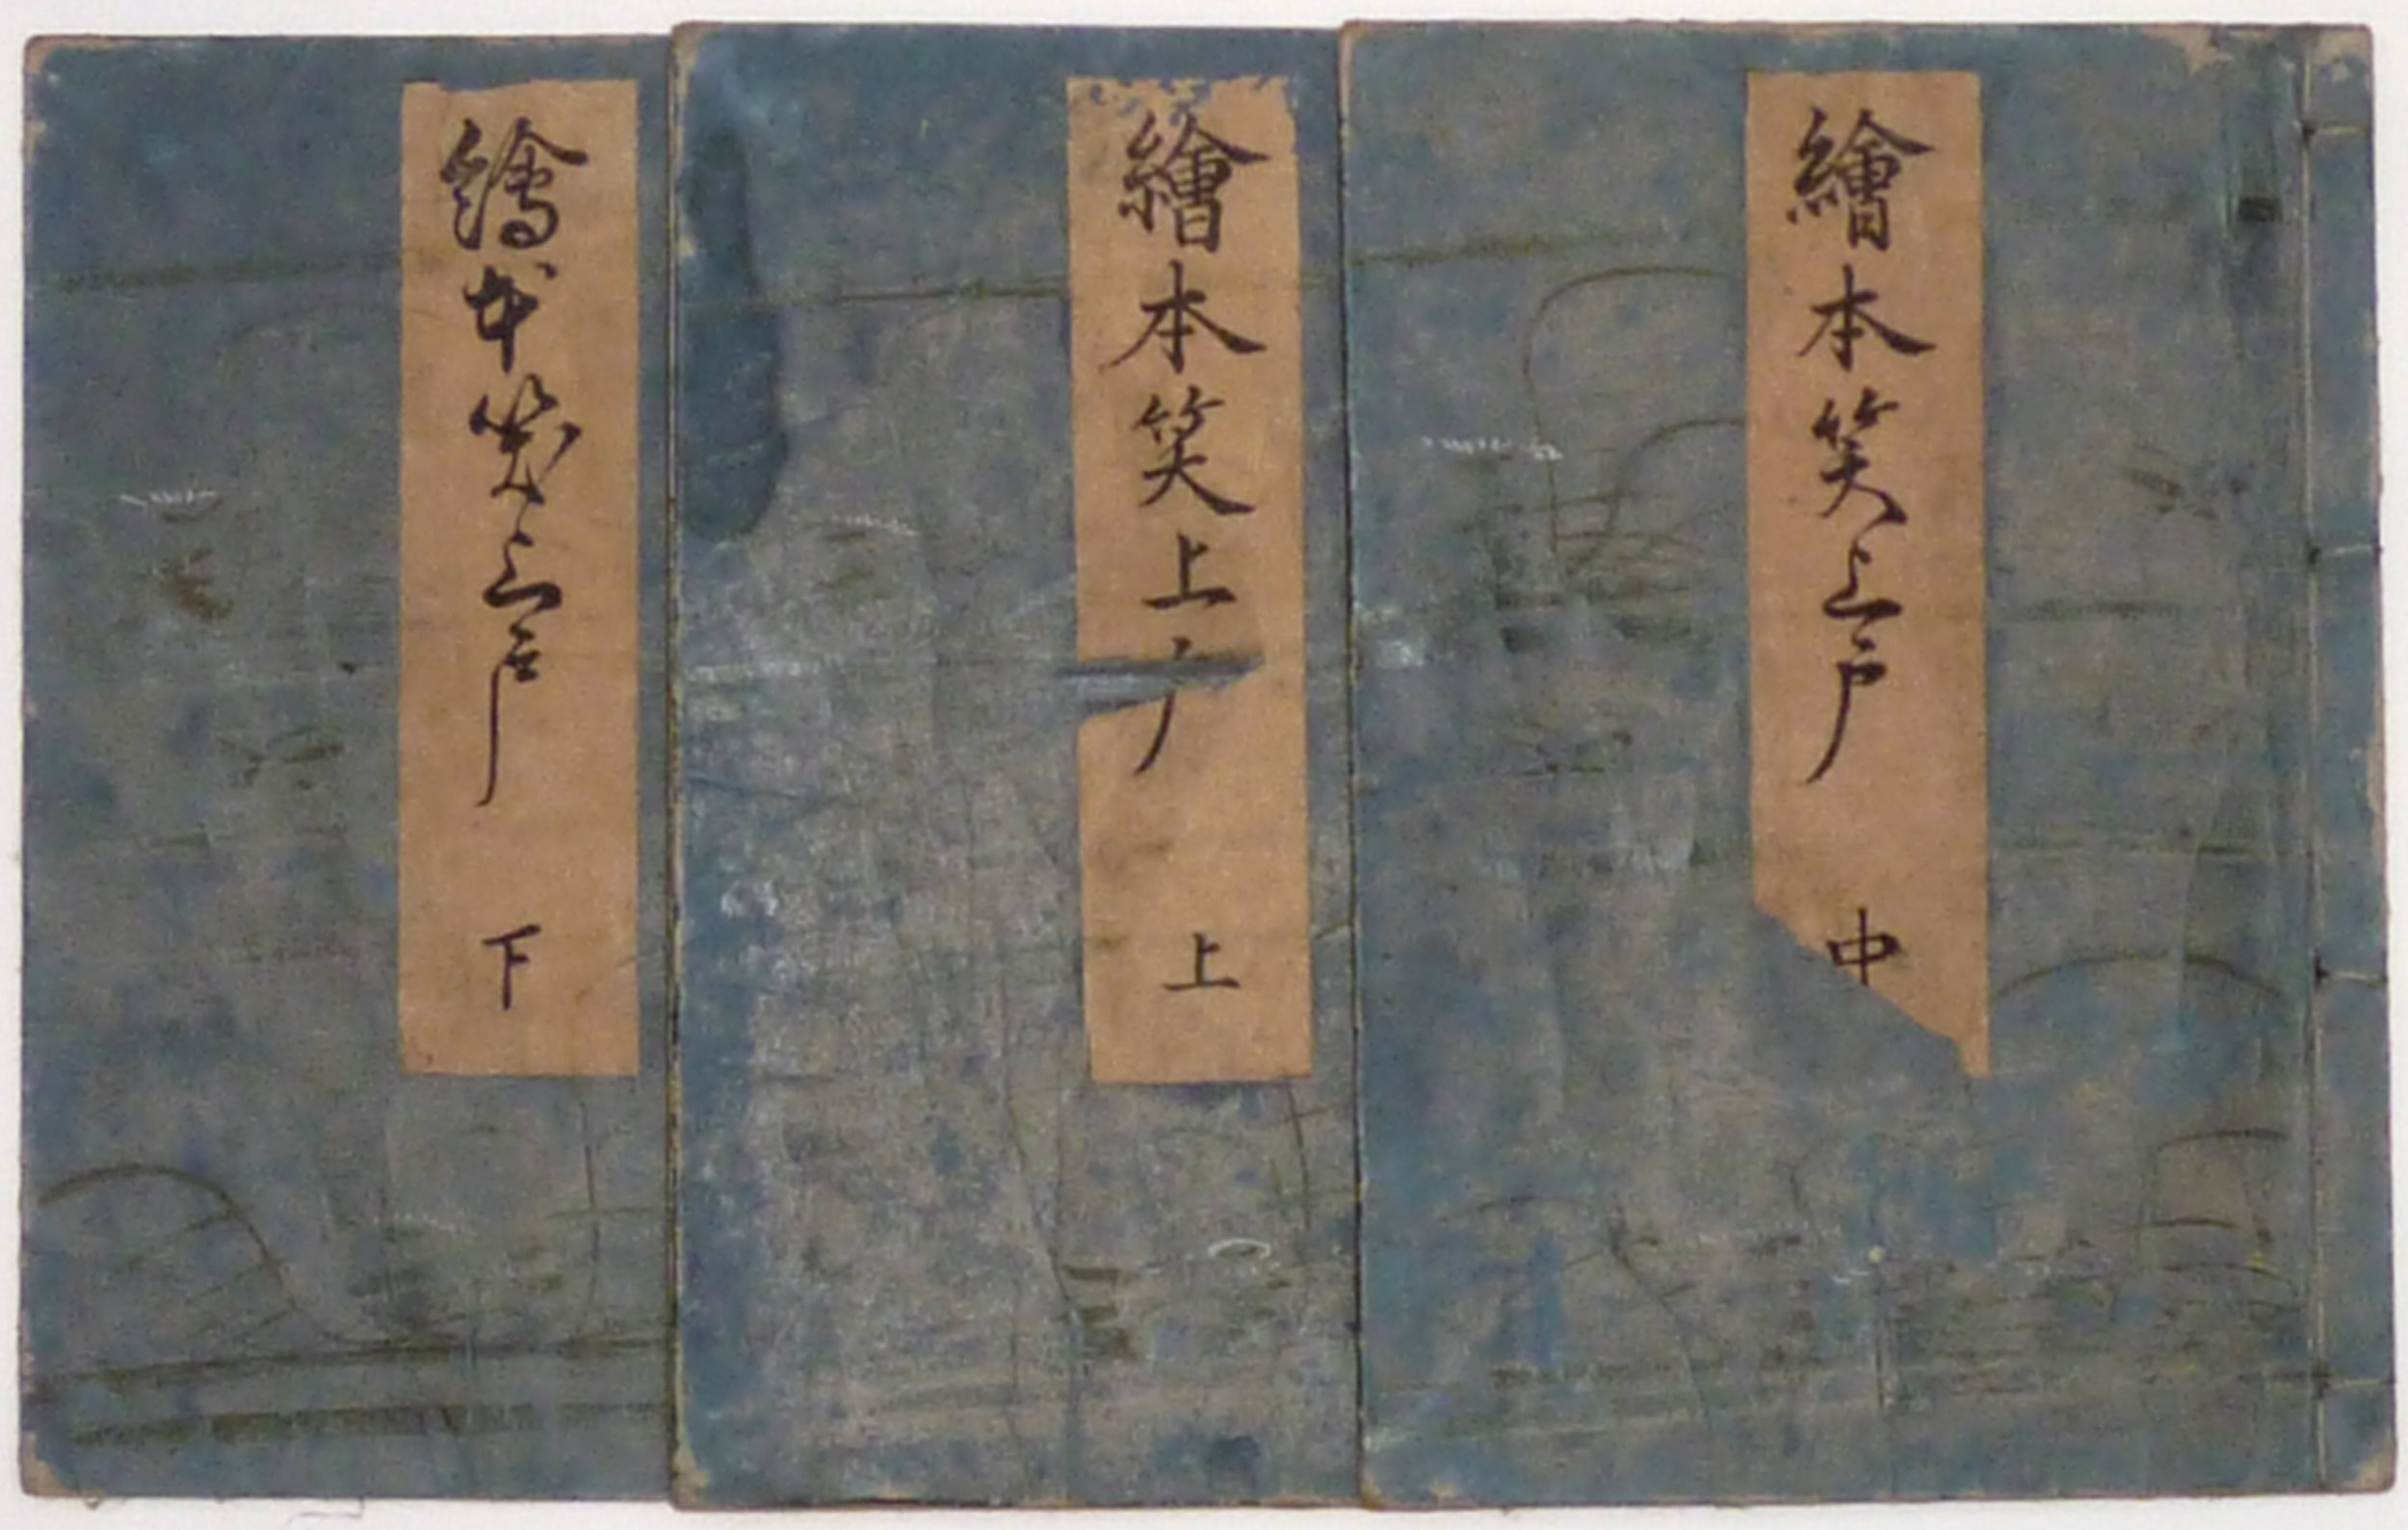 繪本笑上戸 中
繪本笑上戸 上
繪本笑上戸 下